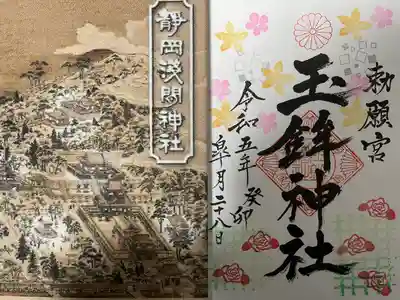 静岡浅間神社
勅願宮
玉鉾神社
令和五年 癸卯
皐月二十八日